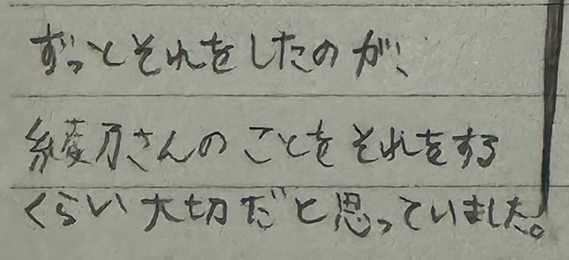 ずっとそれをしたのが、
綾乃さんのことをそれをする
くらい大切だと思っていました。